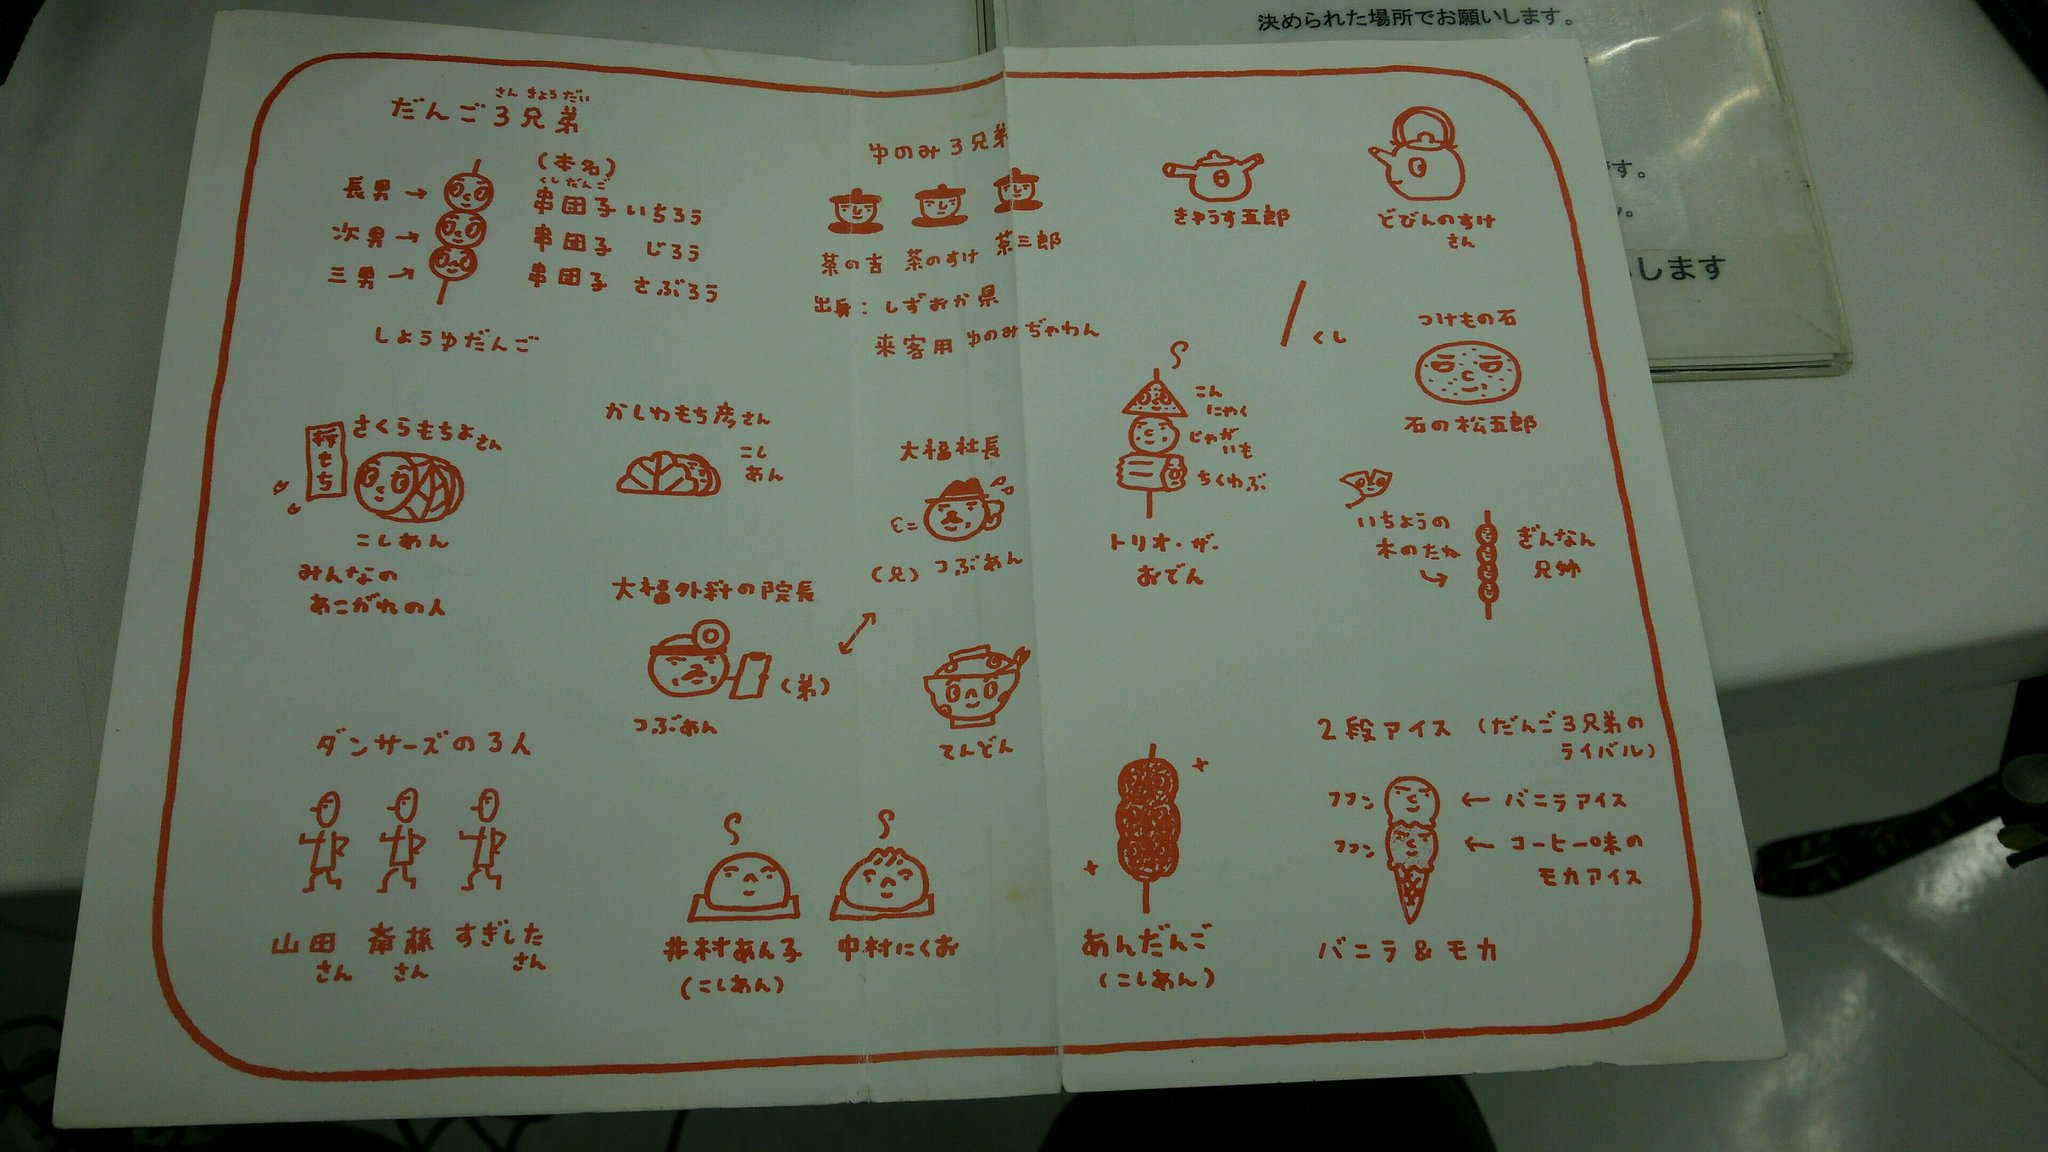 決められた場所でお願いします。
す。
します
さんきょうだい
だんご3兄弟
(本名)
くしだんご
長男→ 串団子いちろう
次男→ 串団子 じろう
三男→ 串団子 さぶろう
しょうゆだんご
ゆのみ3兄弟
茶の吉 茶のすけ 茶三郎
出身:しずおか県
来客用ゆのみぢゃわん
きゅうす五郎
どびんのすけ
さん
くし
つけもの石
石の松五郎
さくらもちよさん
桜もち
こしあん
みんなの
あこがれの人
かしわもち彦さん
こし
あん
大福社長
(兄)つぶあん
大福外科の院長
(弟)
つぶあん
てんどん
こん
にゃく
じゃが
いも
ちくわぶ
トリオ・ザ・
おでん
いちょうの
木のたね
ぎんなん
兄弟
ダンサーズの3人
山田さん
斎藤さん
すぎしたさん
井村あん子
(こしあん)
中村にくお
あんだんご
(こしあん)
2段アイス(だんご3兄弟の
ライバル)
フフン ←バニラアイス
フフン ←コーヒー味の
モカアイス
バニラ&モカ